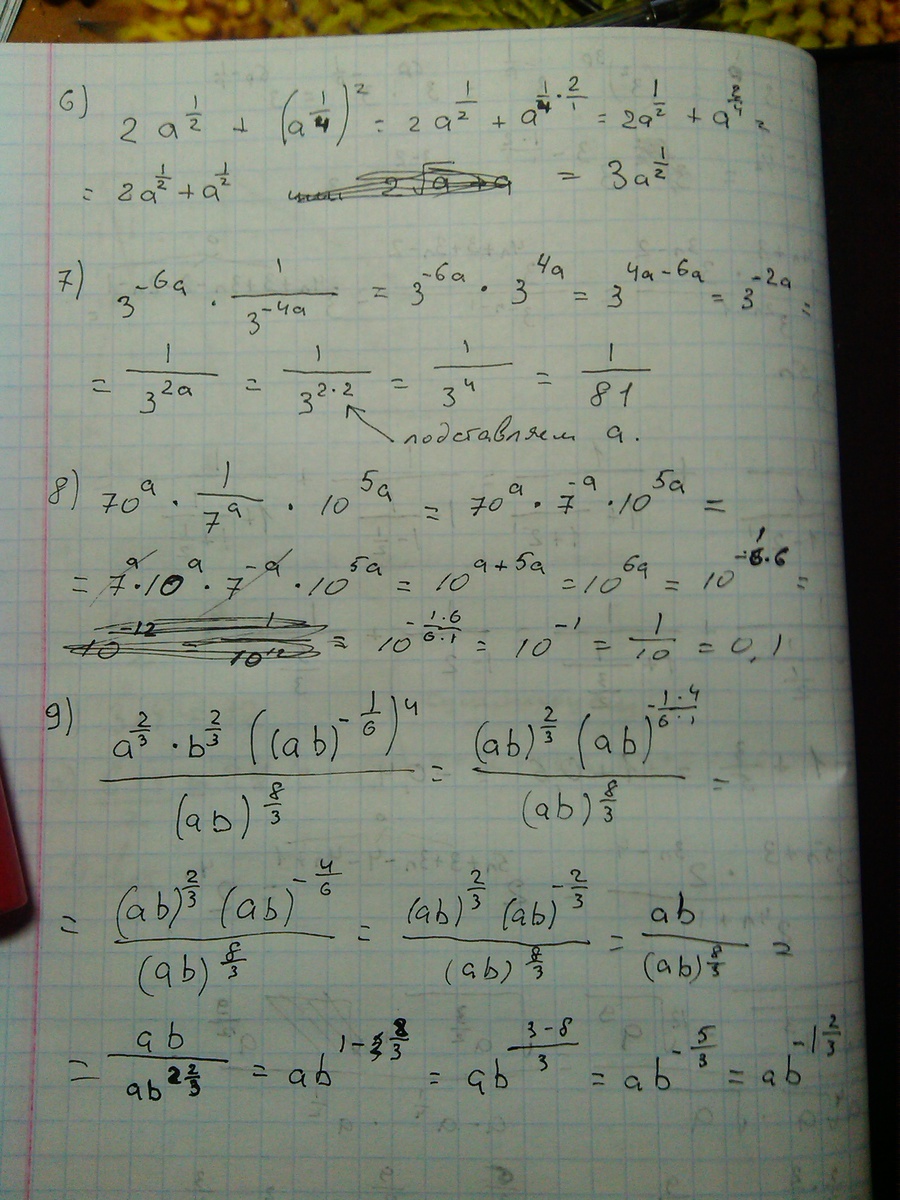 6) 2a^{1/2} + (a^{1/4})^2 = 2a^{1/2} + a^{1/4 · 2/1} = 2a^{1/2} + a^{2/4} =
= 2a^{1/2} + a^{1/2} = 3a^{1/2}
7) 3^{-6a} · 1/3^{-4a} = 3^{-6a} · 3^{4a} = 3^{4a-6a} = 3^{-2a} =
= 1/3^{2a} = 1/3^{2·2} = 1/3^4 = 1/81
подставляем a.
8) 70^a · 1/7^a · 10^{5a} = 70^a · 7^{-a} · 10^{5a} =
= 7^a · 10^a · 7^{-a} · 10^{5a} = 10^{a+5a} = 10^{6a} = 10^{-1/6·6} =
= 10^{-1·6/6·1} = 10^{-1} = 1/10 = 0,1
9) a^{2/3} · b^{2/3} ((ab)^{-1/6})^4 / (ab)^{8/3} = (ab)^{2/3} (ab)^{-1·4/6·1} / (ab)^{8/3} =
= (ab)^{2/3} (ab)^{-4/6} / (ab)^{8/3} = (ab)^{2/3} (ab)^{-2/3} / (ab)^{8/3} = ab / (ab)^{8/3} =
= ab / ab^{2 2/3} = ab^{1-8/3} = ab^{3-8/3} = ab^{-5/3} = ab^{-1 2/3}